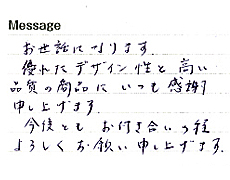 Message
お世話になります.
優れたデザイン性と高い
品質の商品にいつも感謝
申し上げます.
今後とも お付き合いの程
よろしくお願い申し上げます.